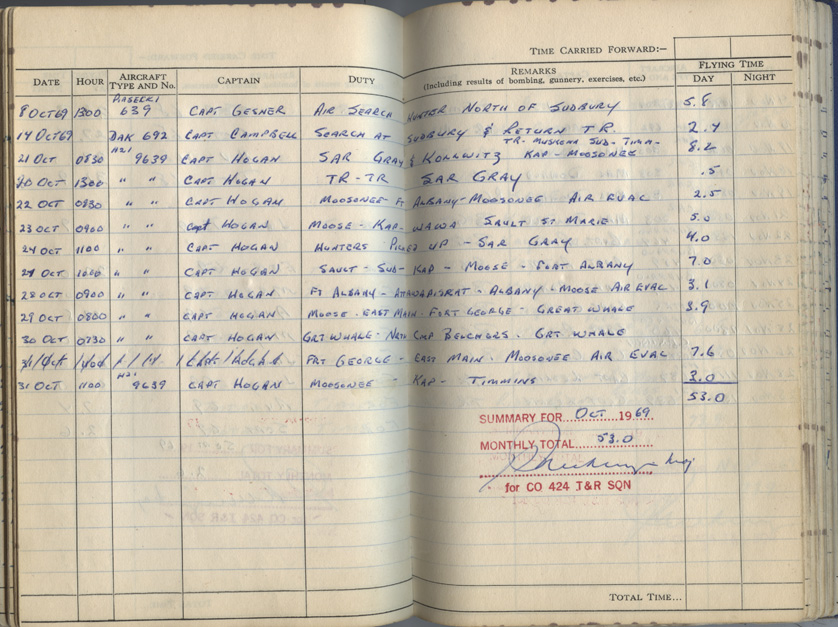 TIME CARRIED FORWARD:—
DATE HOUR AIRCRAFT TYPE AND No. CAPTAIN DUTY REMARKS (Including results of bombing, gunnery, exercises, etc.) FLYING TIME DAY NIGHT
8 OCT 69 1300 PIASECKI 639 CAPT GESNER AIR SEARCH HUNTER NORTH OF SUDBURY 5.8
14 OCT 69 DAK 692 CAPT CAMPBELL SEARCH AT SUDBURY & RETURN TR. 2.4
21 OCT 0830 H21 9639 CAPT HOGAN SAR GRAY & KOLLWITZ TR- MUSKOKA SUB- TIMM- KAP - MOOSONEE 8.2
20 OCT 1300 " " CAPT HOGAN TR-TR SAR GRAY .5
22 OCT 0830 " " CAPT HOGAN MOOSONEE FT ALBANY - MOOSONEE AIR EVAC 2.5
23 OCT 0900 " " Capt HOGAN MOOSE - KAP - WAWA SAULT ST MARIE 5.0
24 OCT 1100 " " CAPT HOGAN HUNTERS PICKED UP - SAR GRAY 4.0
27 OCT 1000 " " CAPT HOGAN SAULT - SUD- KAP - MOOSE - FORT ALBANY 7.0
28 OCT 0900 " " CAPT HOGAN FT ALBANY - ATTAWAPISKAT - ALBANY - MOOSE AIR EVAC 3.1
29 OCT 0800 " " CAPT HOGAN MOOSE - EAST MAIN - FORT GEORGE - GREAT WHALE 3.9
30 OCT 0730 " " CAPT HOGAN GRT WHALE - NRTH CMP BELCHORS. GRT WHALE
FRT GEORGE - EAST MAIN - MOOSONEE AIR EVAC 7.6
31 OCT 1100 H21 9639 CAPT HOGAN MOOSONEE - KAP - TIMMINS 3.0
53.0
SUMMARY FOR OCT 1969
MONTHLY TOTAL 53.0
for CO 424 T&R SQN
TOTAL TIME...